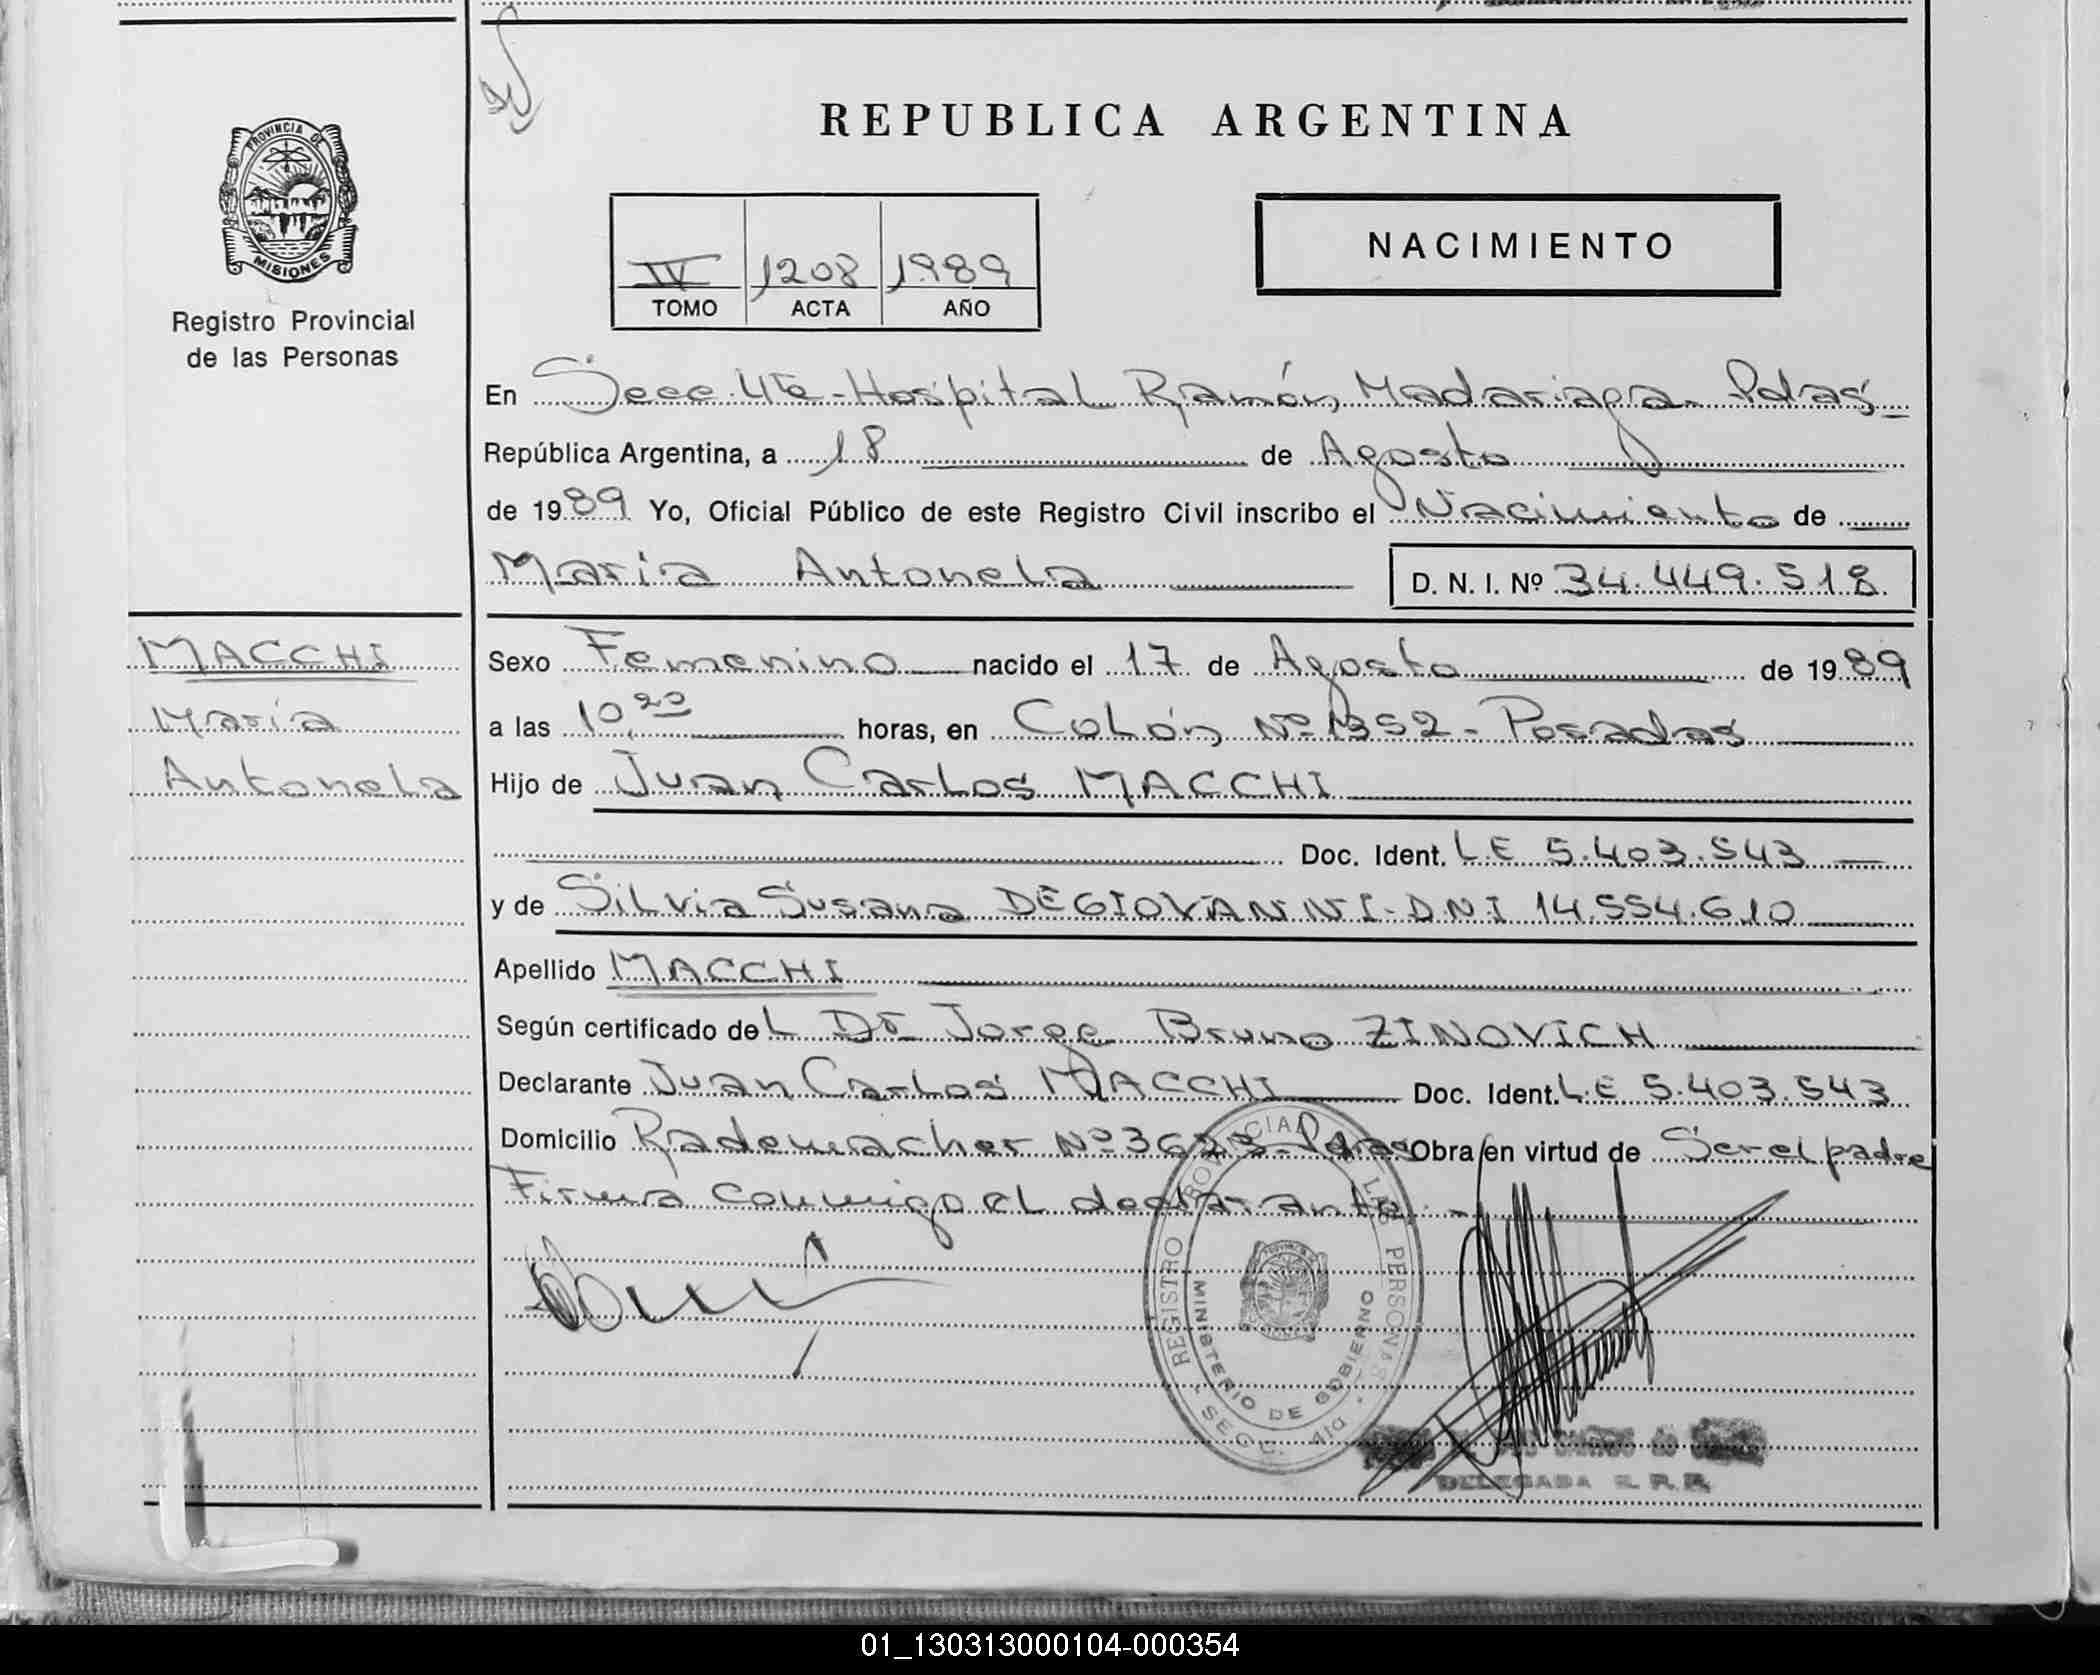 REPUBLICA ARGENTINA
PROVINCIA DE
MISIONES
Registro Provincial
de las Personas
IV 1208 1989
TOMO ACTA AÑO
NACIMIENTO
En Secc. 4ta - Hospital Ramón Madariaga - Pdas -
República Argentina, a 18 de Agosto
de 1989 Yo, Oficial Público de este Registro Civil inscribo el Nacimiento de
María Antonela D. N. I. Nº 34.449.518
MACCHI
María
Antonela
Sexo Femenino nacido el 17 de Agosto de 1989
a las 10,20 horas, en Colón Nº 1352 - Posadas
Hijo de Juan Carlos MACCHI
Doc. Ident. L.E 5.403.543
y de Silvia Susana DEGIOVANNI - D.N.I 14.554.610
Apellido MACCHI
Según certificado del Dr Jorge Bruno ZINOVICH
Declarante Juan Carlos MACCHI Doc. Ident. L.E 5.403.543
Domicilio Rademacher Nº 3623 - Pdas Obra en virtud de Ser el padre
Firma conmigo el declarante. -
REGISTRO PROVINCIAL LAS PERSONAS
MINISTERIO DE GOBIERNO
DELEGADA R. P. P.
01_130313000104-000354